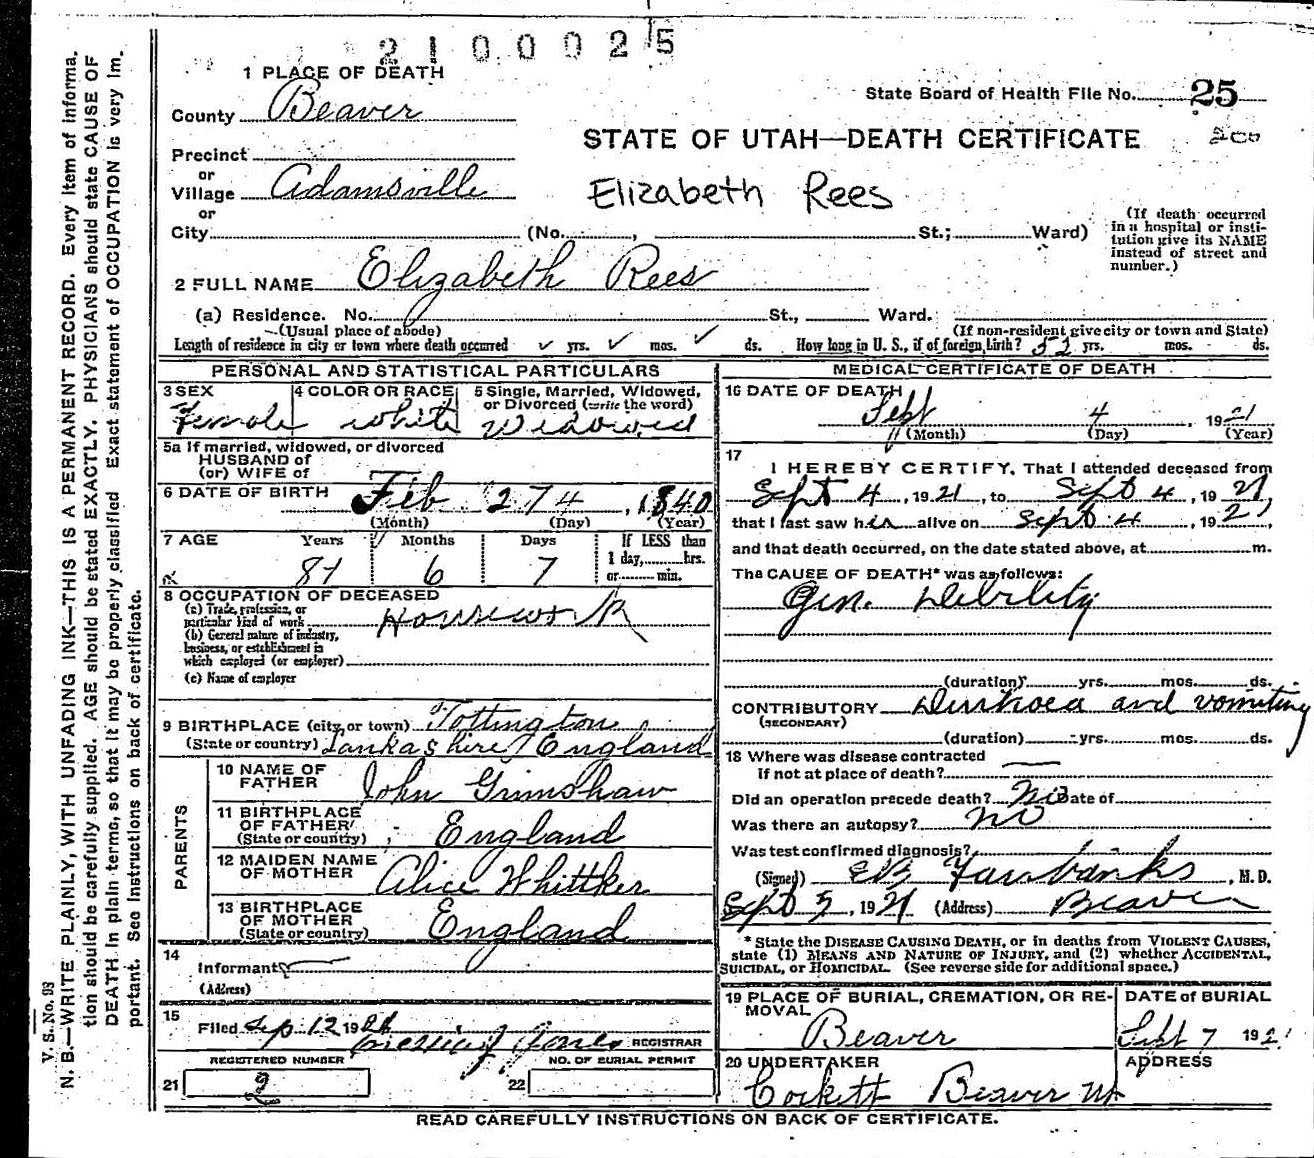 2100025
1 PLACE OF DEATH
State Board of Health File No. 25
County Beaver
STATE OF UTAH—DEATH CERTIFICATE
200
Precinct
or
Village Adamsville
Elizabeth Rees
or
City (No. , St.; Ward)
(If death occurred
in a hospital or insti-
tution give its NAME
instead of street and
number.)
2 FULL NAME Elizabeth Rees
(a) Residence. No. St., Ward.
(Usual place of abode) (If non-resident give city or town and State)
Length of residence in city or town where death occurred ✓ yrs. ✓ mos. ✓ ds. How long in U. S., if of foreign birth? 52 yrs. mos. ds.
PERSONAL AND STATISTICAL PARTICULARS
3 SEX 4 COLOR OR RACE 5 Single, Married, Widowed,
or Divorced (write the word)
Female white Widowed
5a If married, widowed, or divorced
HUSBAND of
(or) WIFE of
6 DATE OF BIRTH Feb 27 4, 1840
(Month) (Day) (Year)
7 AGE Years Months Days If LESS than
1 day, hrs.
81 6 7 or min.
8 OCCUPATION OF DECEASED
(a) Trade, profession, or
particular kind of work Housework
(b) General nature of industry,
business, or establishment in
which employed (or employer)
(c) Name of employer
9 BIRTHPLACE (city or town) Tottington
(State or country) Lankashire England
PARENTS
10 NAME OF
FATHER John Grimshaw
11 BIRTHPLACE
OF FATHER
(State or country) England
12 MAIDEN NAME
OF MOTHER Alice Whittker
13 BIRTHPLACE
OF MOTHER
(State or country) England
14
Informant
(Address)
15
Filed Sep 12 1921 Jones REGISTRAR
REGISTERED NUMBER NO. OF BURIAL PERMIT
21 2 22
MEDICAL CERTIFICATE OF DEATH
16 DATE OF DEATH
Sept 4, 1921
(Month) (Day) (Year)
17
I HEREBY CERTIFY, That I attended deceased from
Sept 4, 1921, to Sept 4, 1921,
that I last saw her alive on Sept 4, 1921,
and that death occurred, on the date stated above, at m.
The CAUSE OF DEATH* was as follows:
Gen. Debility
(duration) yrs. mos. ds.
CONTRIBUTORY Diarrhoea and vomiting
(SECONDARY)
(duration) yrs. mos. ds.
18 Where was disease contracted
If not at place of death?
Did an operation precede death? No Date of
Was there an autopsy? No
Was test confirmed diagnosis?
(Signed) EB Fairbanks, M. D.
Sept 5, 1921 (Address) Beaver
* State the DISEASE CAUSING DEATH, or in deaths from VIOLENT CAUSES,
state (1) MEANS AND NATURE OF INJURY, and (2) whether ACCIDENTAL,
SUICIDAL, or HOMICIDAL. (See reverse side for additional space.)
19 PLACE OF BURIAL, CREMATION, OR RE-
MOVAL
Beaver
DATE of BURIAL
Sept 7 192
20 UNDERTAKER ADDRESS
Cockett Beaver Ut
READ CAREFULLY INSTRUCTIONS ON BACK OF CERTIFICATE.
V. S. No. 98
N. B.—WRITE PLAINLY, WITH UNFADING INK—THIS IS A PERMANENT RECORD. Every item of informa-
tion should be carefully supplied. AGE should be stated EXACTLY. PHYSICIANS should state CAUSE OF
DEATH in plain terms, so that it may be properly classified. Exact statement of OCCUPATION is very im-
portant. See instructions on back of certificate.